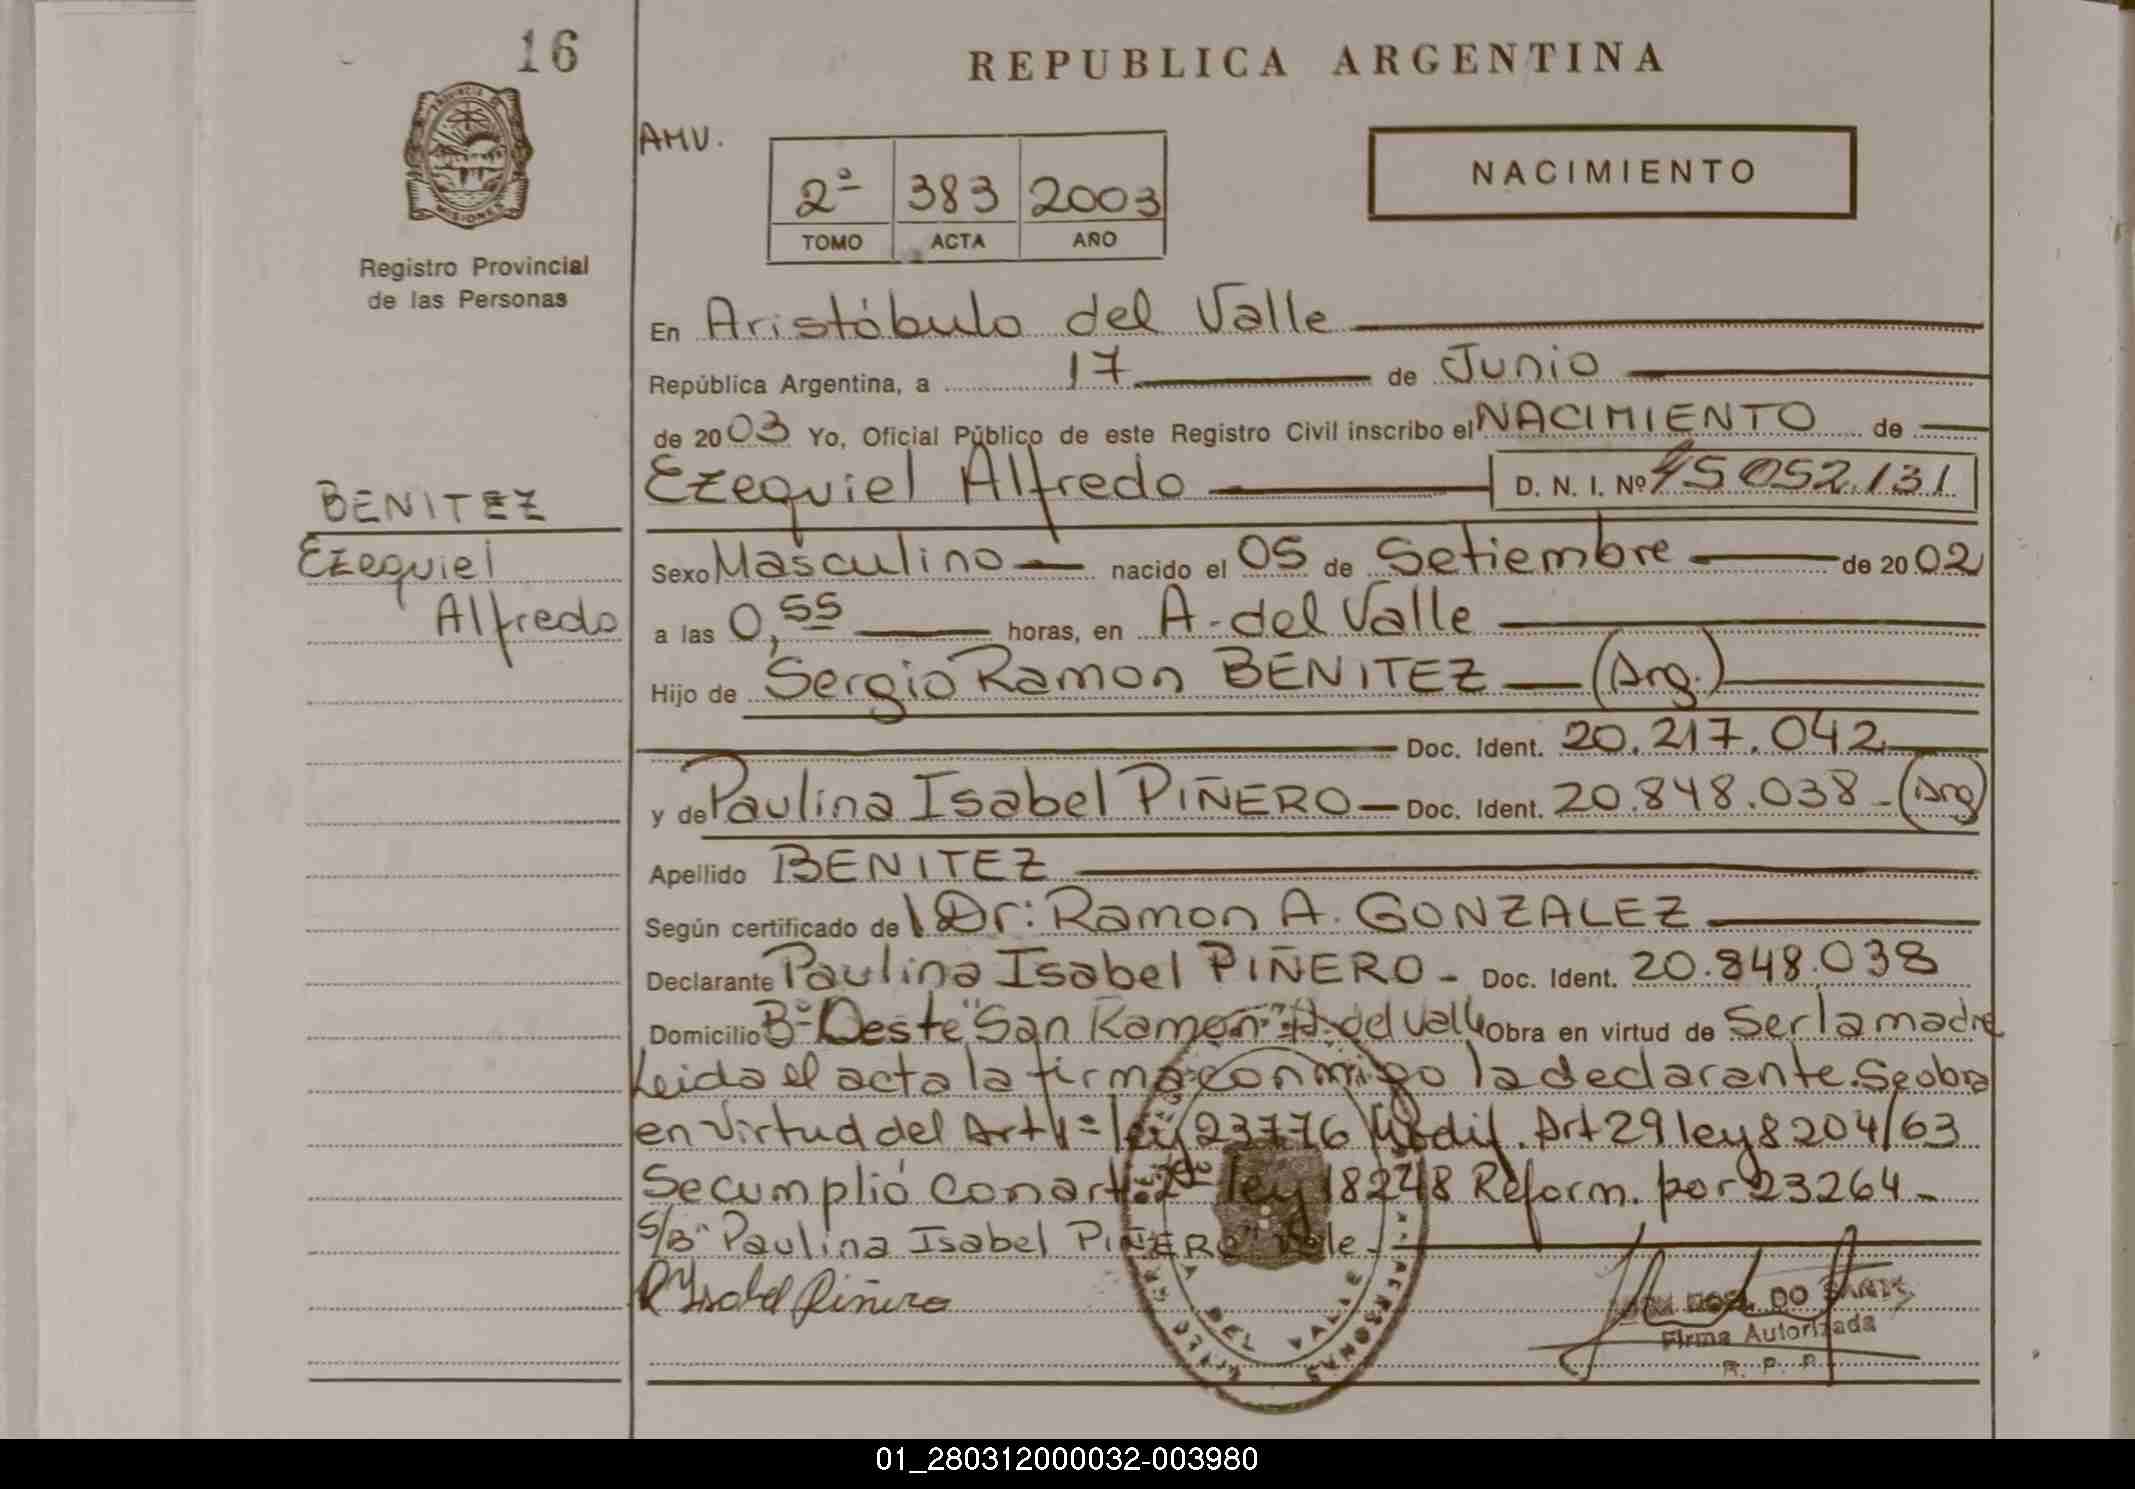 16
REPUBLICA ARGENTINA
AMV.
2º 383 2003
TOMO ACTA AÑO
NACIMIENTO
MISIONES
Registro Provincial
de las Personas
En Aristóbulo del Valle
República Argentina, a 17 de Junio
de 2003 Yo, Oficial Público de este Registro Civil inscribo el NACIMIENTO de
Ezequiel Alfredo D. N. I. Nº 45052.131
BENITEZ
Ezequiel
Alfredo
Sexo Masculino nacido el 05 de Setiembre de 2002
a las 0,55 horas, en A. del Valle
Hijo de Sergio Ramon BENITEZ (Arg.)
Doc. Ident. 20.217.042
y de Paulina Isabel PIÑERO Doc. Ident. 20.848.038 - (Arg)
Apellido BENITEZ
Según certificado de l Dr: Ramon A. GONZALEZ
Declarante Paulina Isabel PIÑERO - Doc. Ident. 20.848.038
Domicilio Bº Oeste "San Ramon" A. del Valle Obra en virtud de Ser la madre
Leida el acta la firma conmigo la declarante. Se obra
en Virtud del Art 1º ley 23776 Modif. Art 29 ley 8204/63
Se cumplió con art. 2º ley 18248 Reform. por 23264 -
S/B "Paulina Isabel PIÑERO" Vale.
Isabel Piñero
DO
Firma Autorizada
R. P. P.
A. DEL VALLE
PERSONAS
01_280312000032-003980